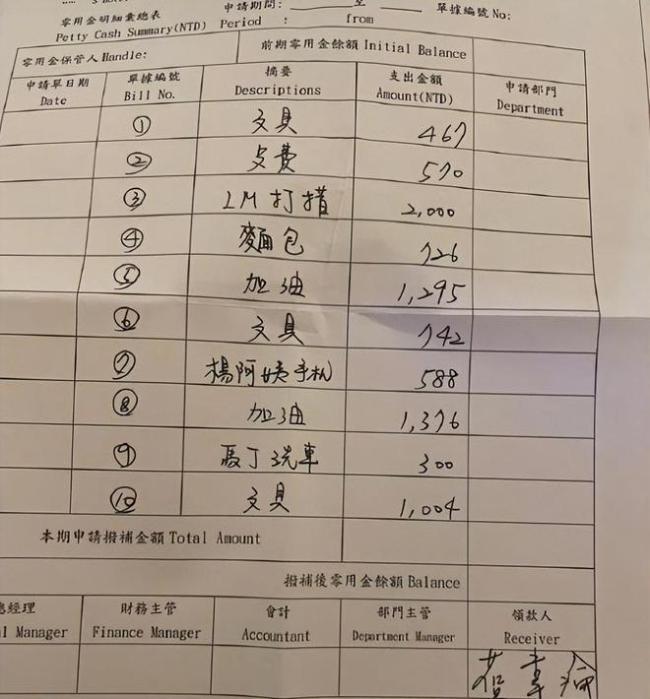 申請期間: 至 單據編號 No:
零用金明細彙總表
Petty Cash Summary(NTD) Period : from
零用金保管人 Handle: 前期零用金餘額 Initial Balance
申請單日期 Date 單據編號 Bill No. 摘要 Descriptions 支出金額 Amount(NTD) 申請部門 Department
① 文具 467
② 費 570
③ 2M 打措 2,000
④ 麵包 726
⑤ 加油 1,295
⑥ 文具 742
⑦ 楊阿姨手机 588
⑧ 加油 1,376
⑨ 馬丁洗車 300
⑩ 文具 1,004
本期申請撥補金額 Total Amount
撥補後零用金餘額 Balance
總經理 財務主管 會計 部門主管 領款人
l Manager Finance Manager Accountant Department Manager Receiver